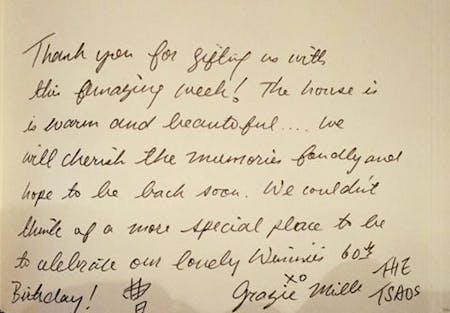 Thank you for gifting us with
this amazing week! The house is
is warm and beautiful.... We
will cherish the memories fondly and
hope to be back soon. We couldn't
think of a more special place to be
to celebrate our lovely Winnie's 60th
Birthday!
xo
Grazie Mille THE
TSAOS